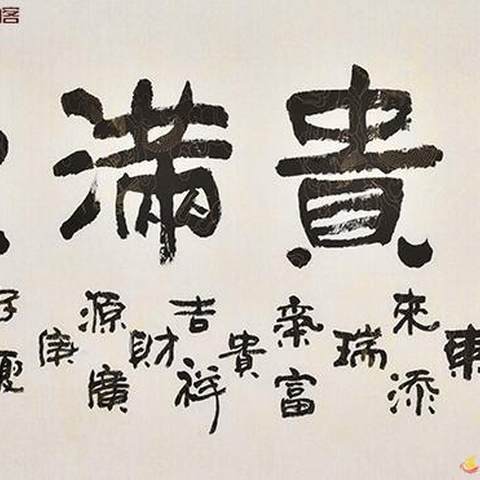 貴滿
東
來添
瑞
帝富
貴
吉祥
財
源廣
庚
子夏